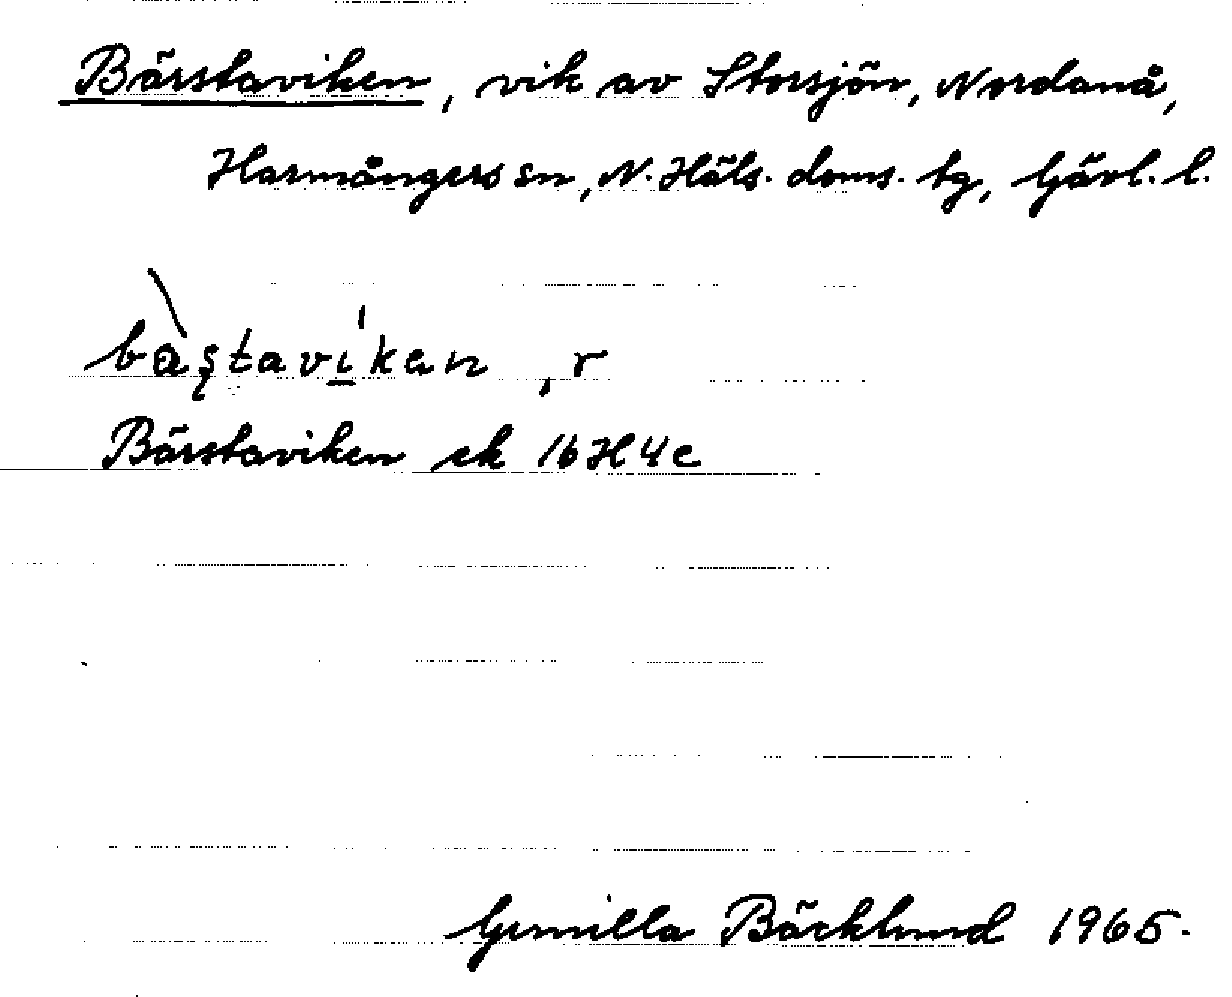 Bärstaviken, vik av Storsjön, Nordanå,
Harmångers sn, N. Häls. doms. tg, Gävl. l.
bàʂtavi̱kan, r
Bärstaviken ek 16H4c
Gunilla Bäcklund 1965.